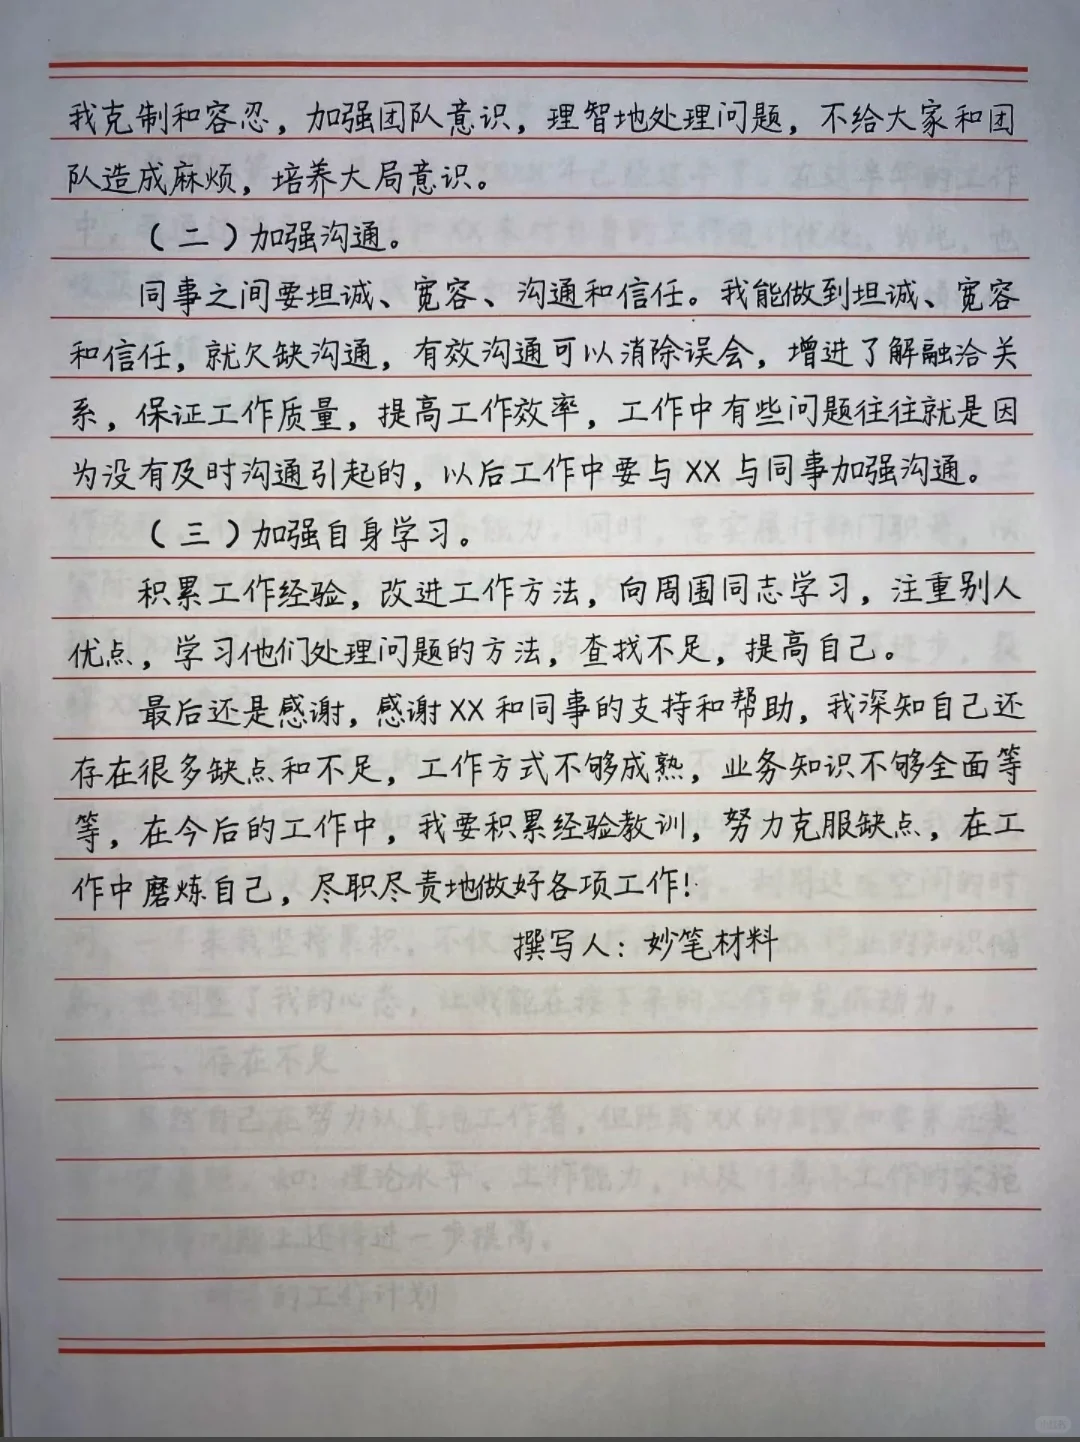 我克制和容忍，加强团队意识，理智地处理问题，不给大家和团
队造成麻烦，培养大局意识。
（二）加强沟通。
同事之间要坦诚、宽容、沟通和信任。我能做到坦诚、宽容
和信任，就欠缺沟通，有效沟通可以消除误会，增进了解融洽关
系，保证工作质量，提高工作效率，工作中有些问题往往就是因
为没有及时沟通引起的，以后工作中要与XX与同事加强沟通。
（三）加强自身学习。
积累工作经验，改进工作方法，向周围同志学习，注重别人
优点，学习他们处理问题的方法，查找不足，提高自己。
最后还是感谢，感谢XX和同事的支持和帮助，我深知自己还
存在很多缺点和不足，工作方式不够成熟，业务知识不够全面等
等，在今后的工作中，我要积累经验教训，努力克服缺点，在工
作中磨炼自己，尽职尽责地做好各项工作！
撰写人：妙笔材料
二、存在不足